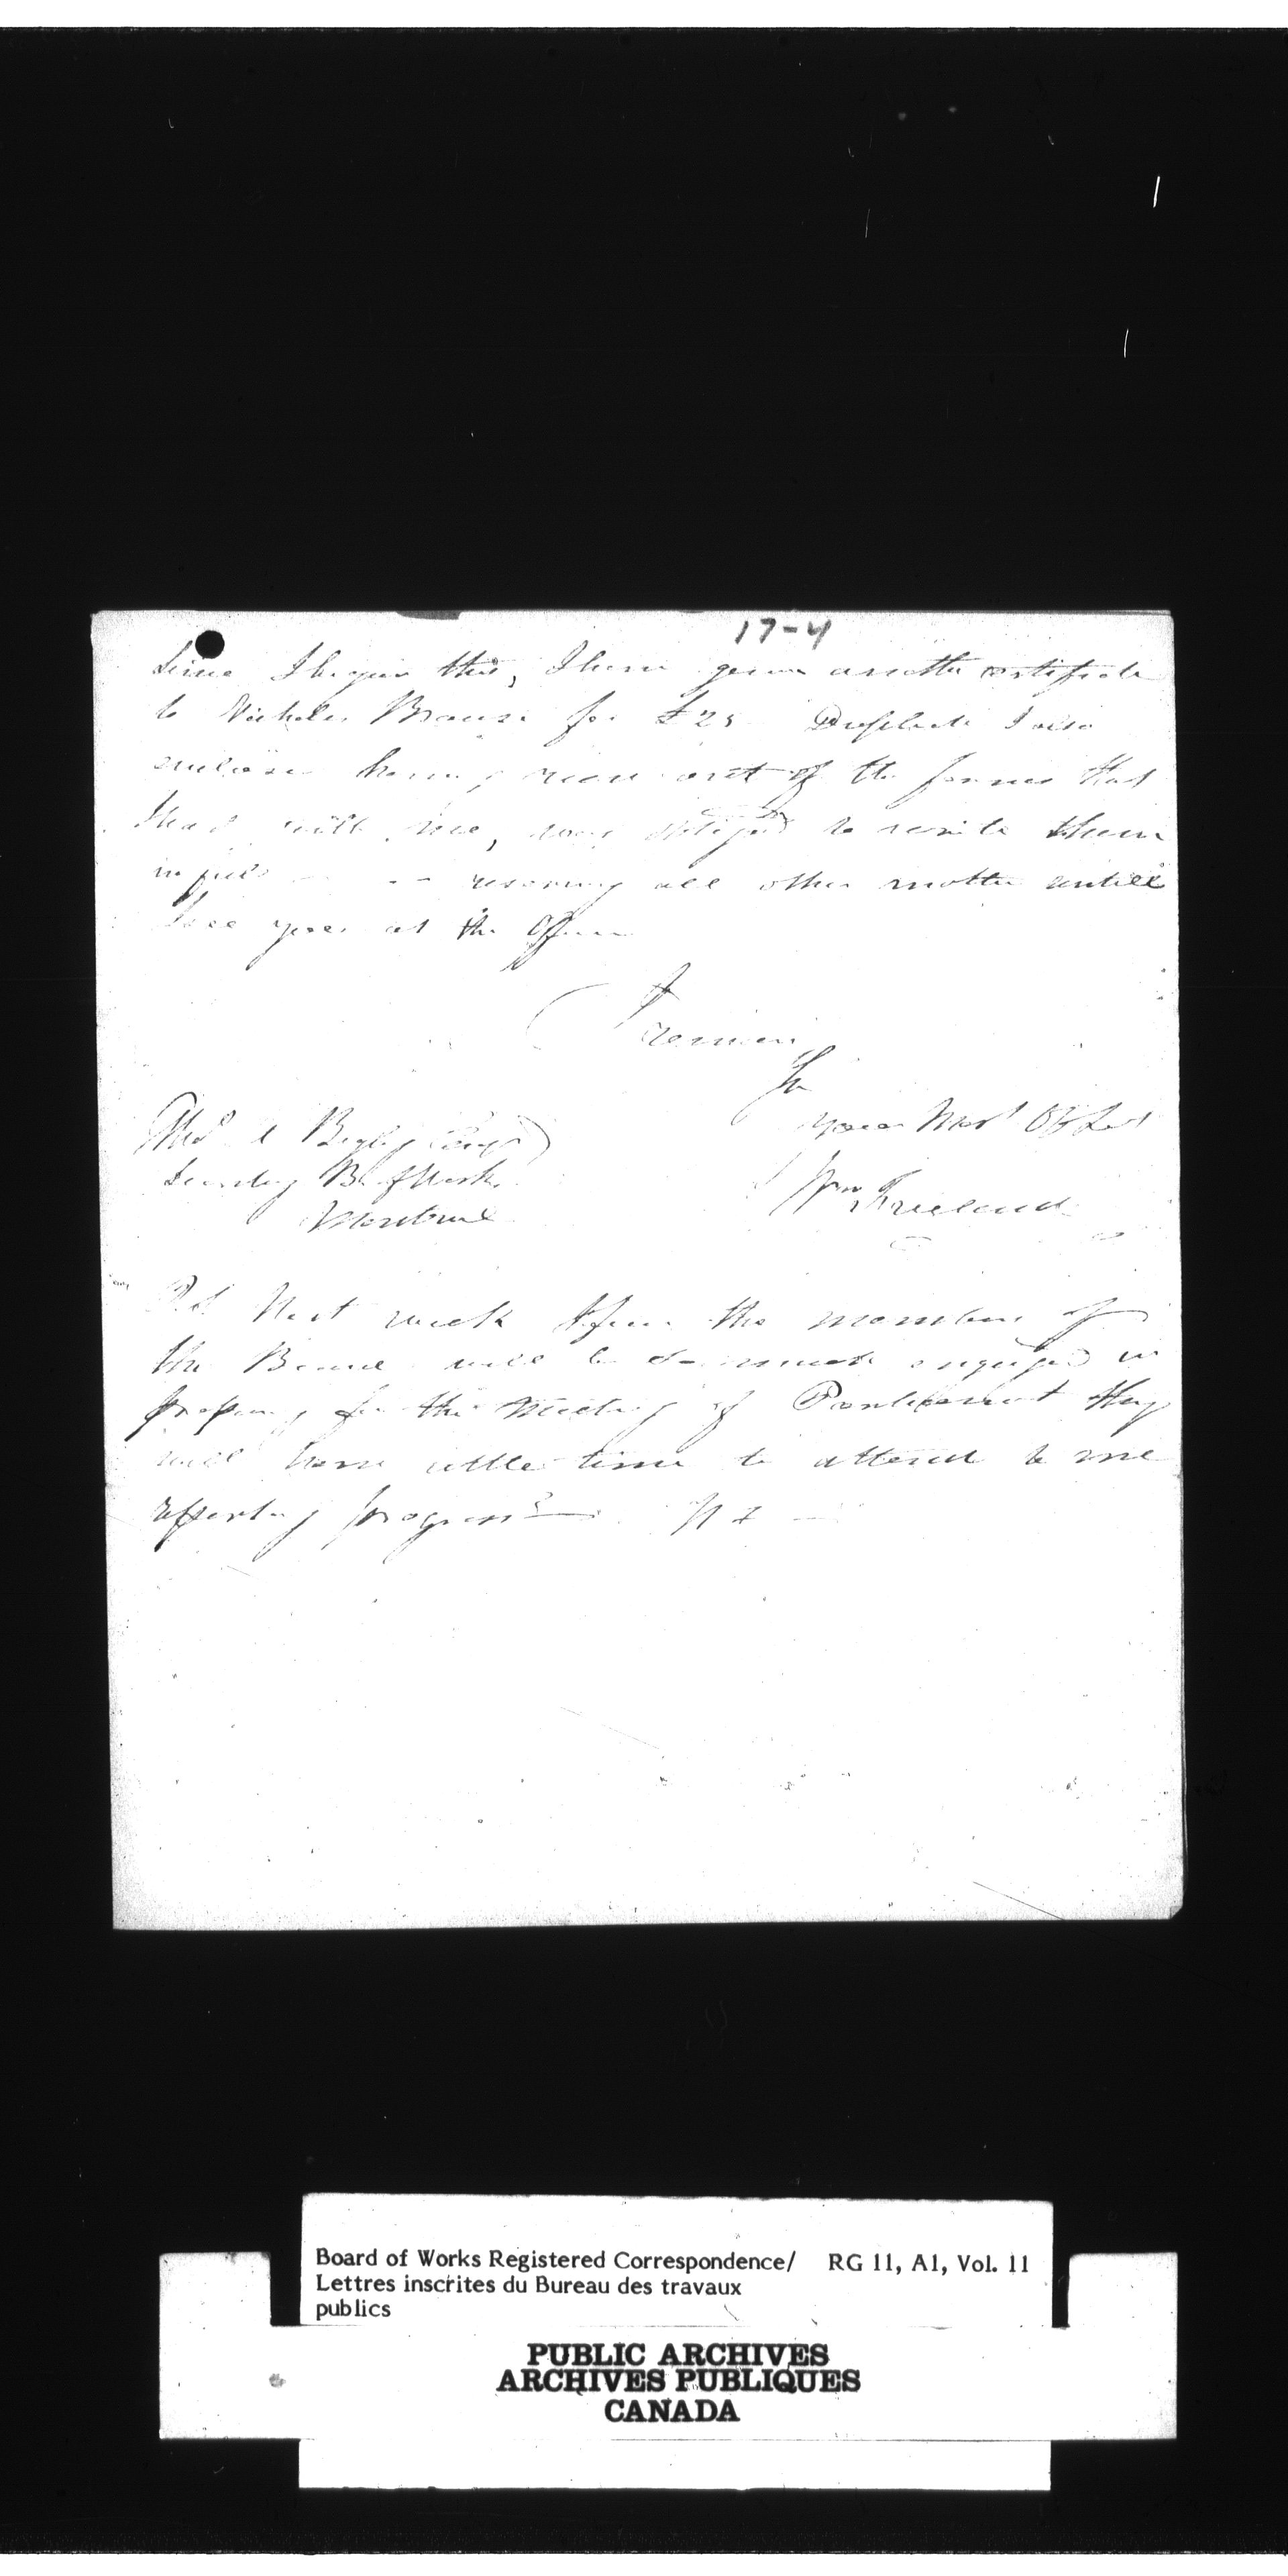 17-4
Since I began this, I have given another certificate
to Nicholas Brouse for £25 Duplicate I also
enclose having run out of the forms that
I had with me, was obliged to write them
in full reserving all other matter untill
I see you at the Office
I
remain
Sir
your Most Obt Set
Thos A Begly Esqr
Secretary Bd of Works
Montreal
Wm Freeland
P.S. Next week I fear the members of
the Board will be so much engaged in
preparing for the Meeting of Parliament they
will have little time to attend to me
reporting progress
Board of Works Registered Correspondence/ RG 11, A1, Vol. 11
Lettres inscrites du Bureau des travaux
publics
PUBLIC ARCHIVES
ARCHIVES PUBLIQUES
CANADA